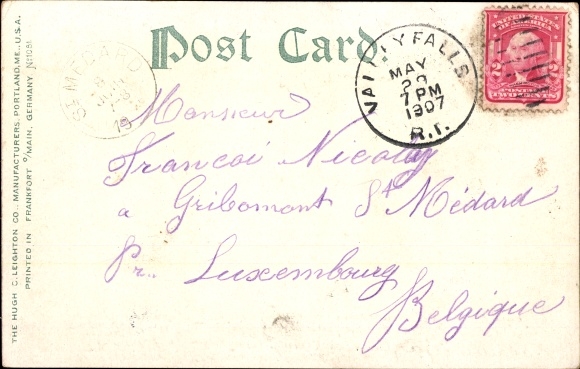 Post Card
VALLEY FALLS
MAY
7 PM
1907
R.I.
UNITED STATES
OF AMERICA
2 2
TWO CENTS
ST MEDARD
Monsieur
Francoi Nicolay
a Gribomont St Médard
Pr. Luxembourg
Belgique
THE HUGH C. LEIGHTON CO., MANUFACTURERS, PORTLAND, ME., U.S.A.
PRINTED IN FRANKFORT o/MAIN, GERMANY